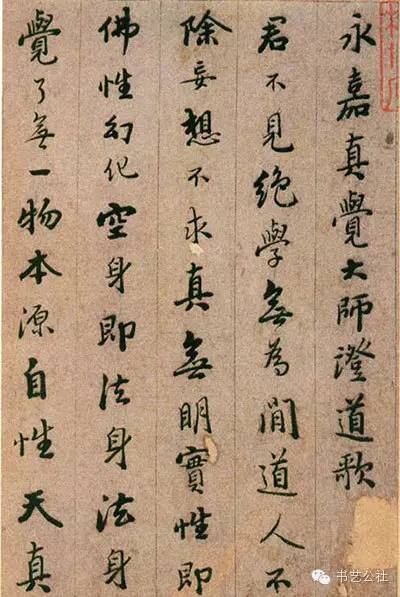 永嘉真覺大師證道歌
君不見絕學無為閒道人不
除妄想不求真無明實性即
佛性幻化空身即法身法身
覺了無一物本源自性天真
书艺公社